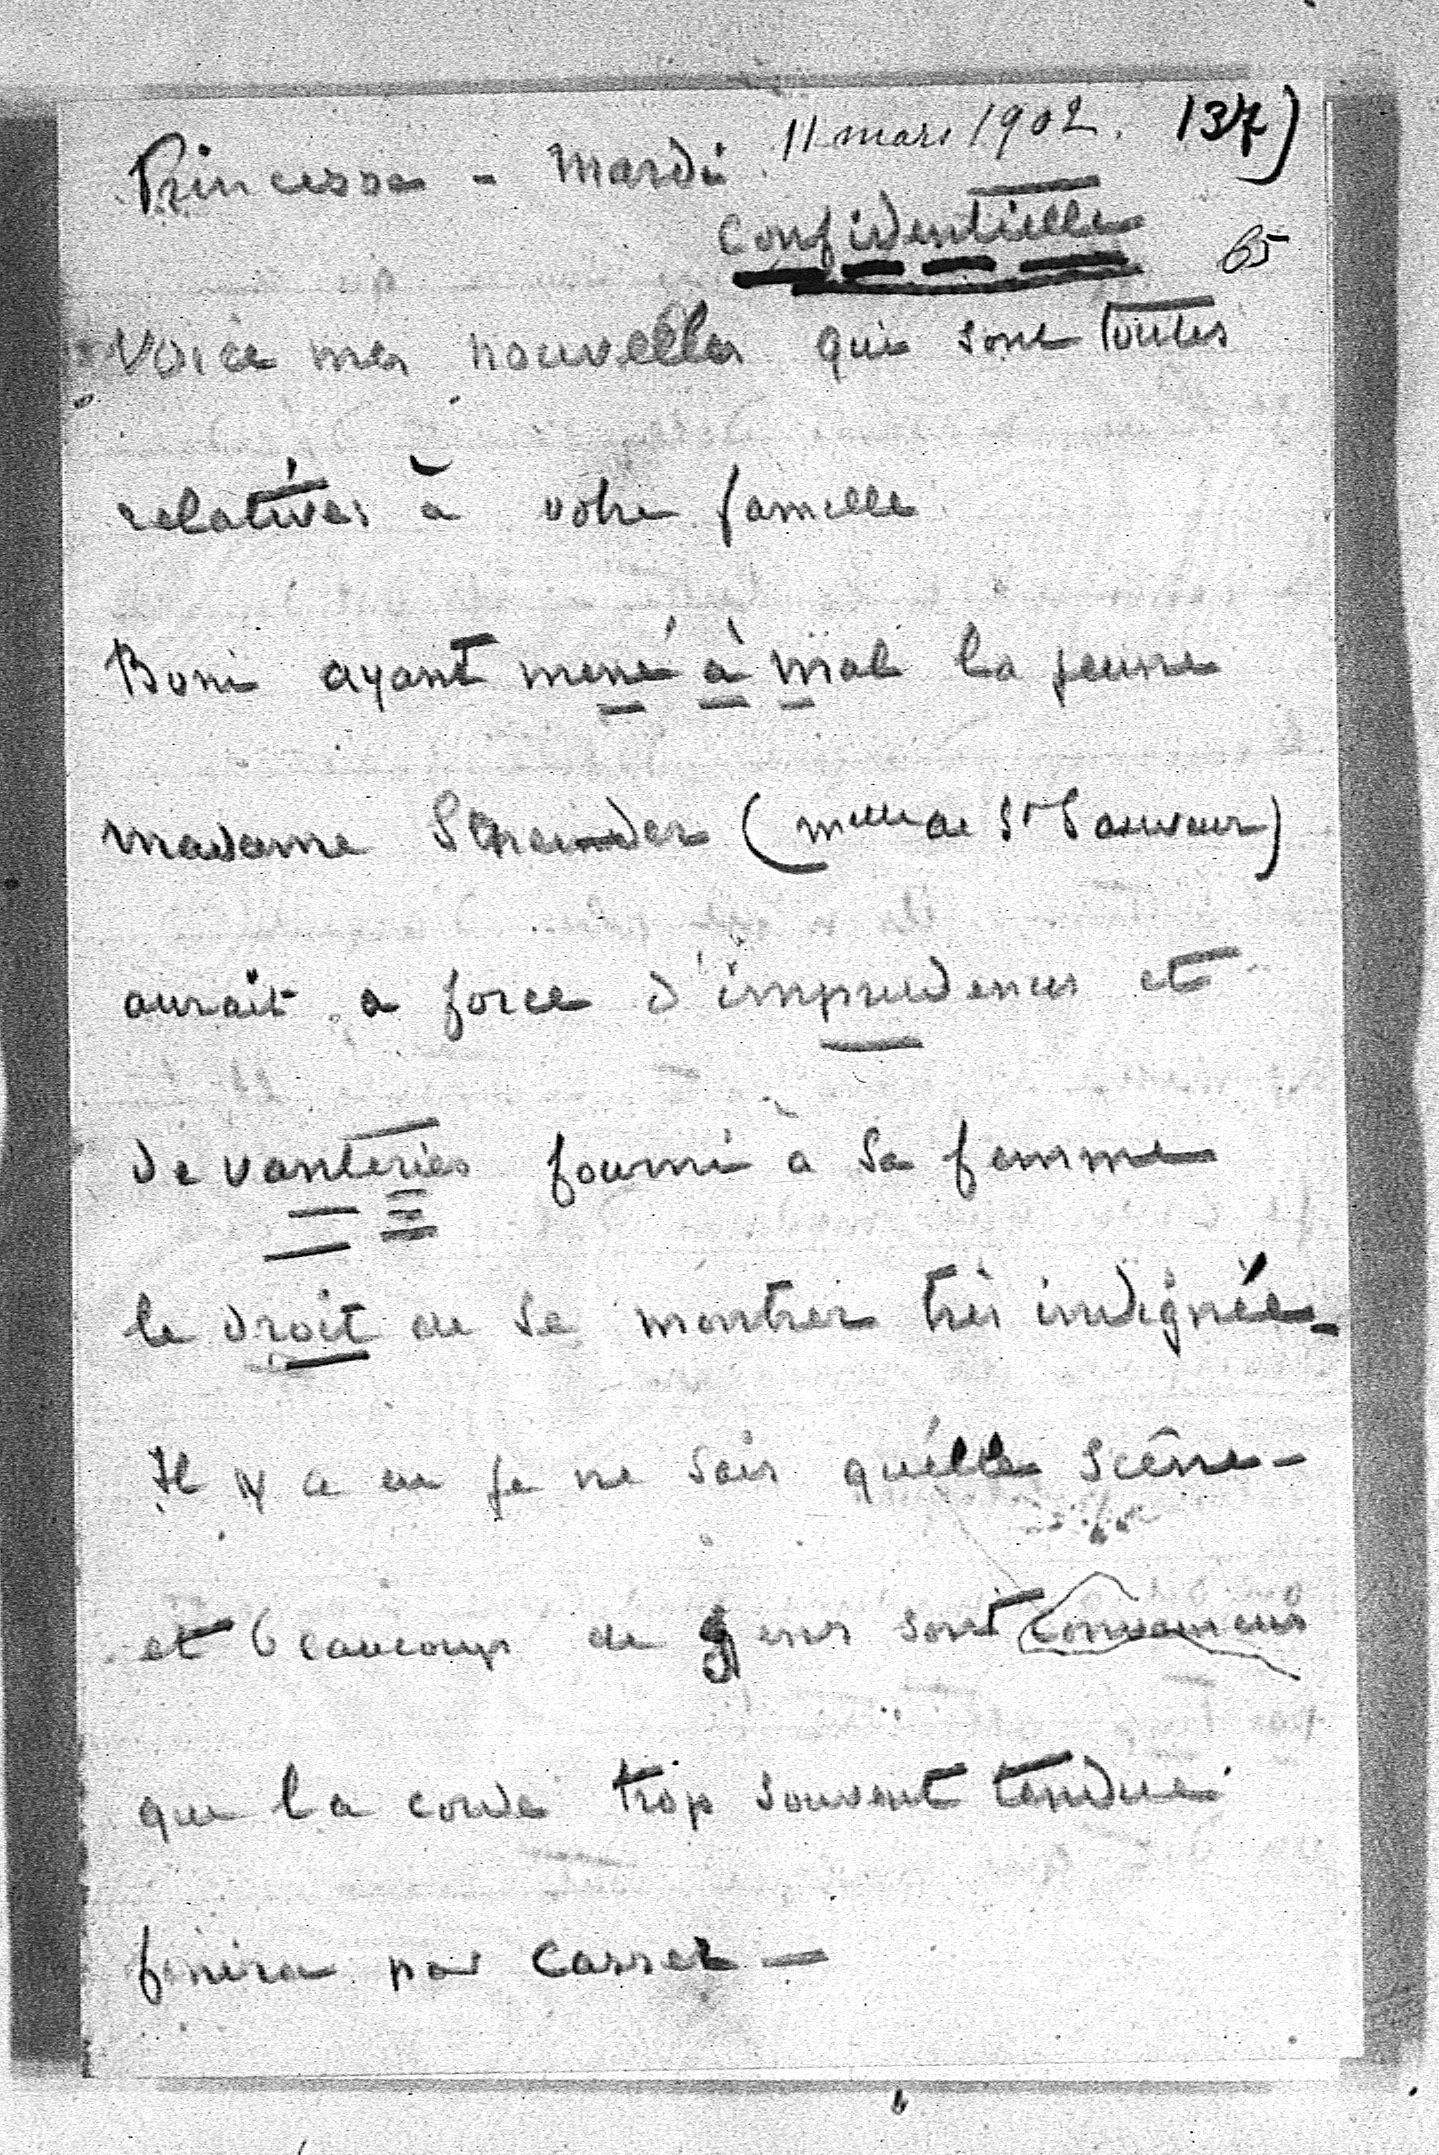 Princesse - Mardi 11 mars 1902. 137)
Confidentielle 65
Voici mes nouvelles qui sont toutes
relatives à votre famille
Boni ayant mené à mal la jeune
madame Schneider (Melle de St Sauveur)
aurait a force d'imprudences et
de vanteries fourni à sa femme
le droit de se montrer très indignée-
Il y a eu je ne sais quelle scêne-
et beaucoup de gens sont convaincus
que la corde trop souvent tendue
finira par casser -